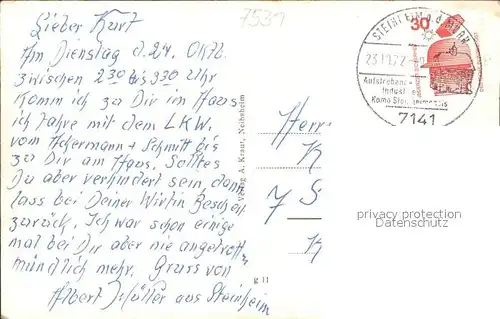 Lieber Kurt
7531
Am Dienstag d. 24. Oktb.
zwischen 230 bis 330 Uhr
Komm ich zu Dir im Haus
ich fahre mit dem LKW.
vom Ackermann + Schmitt bis
zu Dir am Haus. Solltes
Du aber verhindert sein, dann
lass bei Deiner Wirtin Bescheid
zurück. Ich war schon einige
mal bei Dir aber nie angetroffen
mündlich mehr. Gruss von
Albert aus Steinheim
Verlag A. Kraut, Neibsheim
g 11
STEINHEIM a.d. MURR
23.10.72
Aufstrebende
Industrie
7141
30
Herr
K
7 S
K
privacy protection
Datenschutz